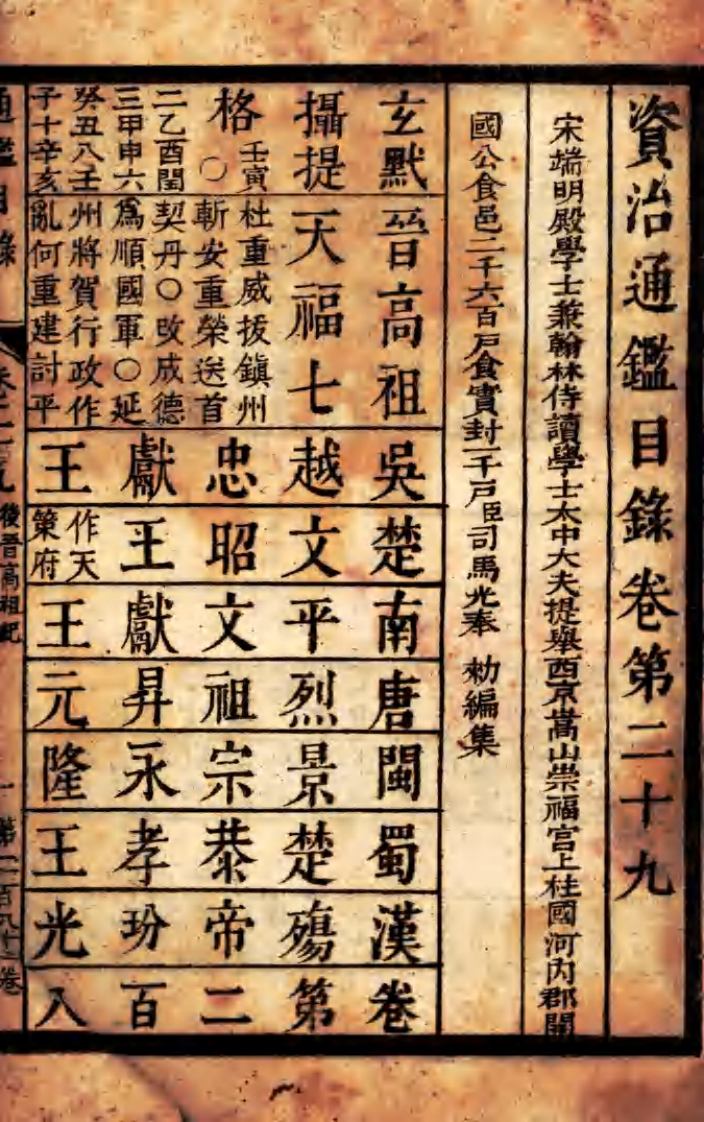 資治通鑑目錄卷第二十九
宋端明殿學士兼翰林侍讀學士太中大夫提舉西京嵩山崇福宮上柱國河內郡開
國公食邑二千六百戶食實封一千戶臣司馬光奉 勑編集
玄默
攝提
格 壬寅
○
二乙酉閏
三甲申六
癸丑八壬
子十辛亥
晉高祖
天福七
杜重威拔鎮州
斬安重榮送首
契丹○改成德
爲順國軍○延
州將賀行政作
亂何重建討平
吳越忠獻王
楚文昭王 作天
策府
南平文獻王
唐烈祖昇元
閩景宗永隆
蜀楚恭孝王
漢殤帝玢光
卷第二百八
通鑑目錄
後晉高祖紀